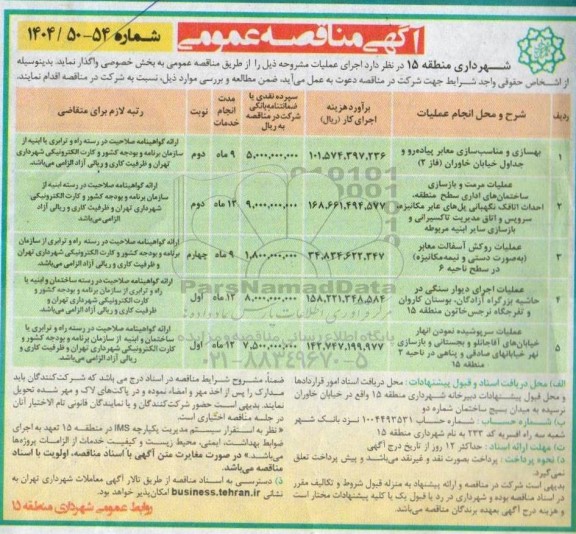 آگهی مناقصه عمومی
شماره ۵۴-۵۰/۱۴۰۴
شهرداری منطقه ۱۵ در نظر دارد اجرای عملیات مشروحه ذیل را از طریق مناقصه عمومی به بخش خصوصی واگذار نماید. بدینوسیله
از اشخاص حقوقی واجد شرایط جهت شرکت در مناقصه دعوت به عمل می‌آید، ضمن مطالعه و بررسی موارد ذیل، نسبت به شرکت در مناقصه اقدام نمایند.
ردیف
شرح و محل انجام عملیات
برآورد هزینه
اجرای کار (ریال)
سپرده نقدی یا
ضمانتنامه بانکی
شرکت در مناقصه
به ریال
مدت
انجام
خدمات
نوبت
رتبه لازم برای متقاضی
۱
بهسازی و مناسب‌سازی معابر پیاده‌رو و
جداول خیابان خاوران (فاز ۲)
۱۰۱,۵۷۴,۳۹۷,۲۳۶
۵,۰۰۰,۰۰۰,۰۰۰
۹ ماه
دوم
ارائه گواهینامه صلاحیت در رسته راه و ترابری یا ابنیه از
سازمان برنامه و بودجه کشور و کارت الکترونیکی شهرداری
تهران و ظرفیت کاری و ریالی آزاد الزامی می‌باشد.
۲
عملیات مرمت و بازسازی
ساختمان‌های اداری سطح منطقه،
احداث اتاقک نگهبانی پل‌های عابر مکانیزه،
سرویس و اتاق مدیریت تاکسیرانی و
بازسازی سایر ابنیه مربوطه
۱۶۸,۶۶۱,۴۹۴,۵۷۷
۹,۰۰۰,۰۰۰,۰۰۰
۱۲ ماه
دوم
ارائه گواهینامه صلاحیت در رسته ابنیه از
سازمان برنامه و بودجه کشور و کارت الکترونیکی
شهرداری تهران و ظرفیت کاری و ریالی آزاد
الزامی می‌باشد
۳
عملیات روکش آسفالت معابر
(به‌صورت دستی و نیمه‌مکانیزه)
در سطح ناحیه ۶
۳۴,۸۳۴,۶۲۲,۳۴۷
۱,۸۰۰,۰۰۰,۰۰۰
۹ ماه
چهارم
ارائه گواهینامه صلاحیت در رسته راه و ترابری از سازمان
برنامه و بودجه کشور و کارت الکترونیکی شهرداری تهران
و ظرفیت کاری و ریالی آزاد الزامی می‌باشد.
۴
عملیات اجرای دیوار سنگی در
حاشیه بزرگراه آزادگان، بوستان کاروان
و تفرجگاه نرجس خاتون منطقه ۱۵
۱۵۸,۲۲۱,۳۴۸,۵۸۴
۸,۰۰۰,۰۰۰,۰۰۰
۱۲ ماه
اول
ارائه گواهینامه صلاحیت در رسته ساختمان و ابنیه یا
راه و ترابری از سازمان برنامه و بودجه کشور و
کارت الکترونیکی شهرداری تهران و
ظرفیت کاری و ریالی آزاد الزامی می‌باشد.
۵
عملیات سرپوشیده نمودن انهار
خیابان‌های آقاجانلو و بجستانی و بازسازی
نهر خیابانهای صادقی و پناهی در ناحیه ۲
منطقه ۱۵
۱۴۲,۷۴۷,۱۹۹,۹۷۷
۷,۵۰۰,۰۰۰,۰۰۰
۱۲ ماه
اول
ارائه گواهینامه صلاحیت در رسته راه و ترابری یا
ساختمان و ابنیه از سازمان برنامه و بودجه کشور و
کارت الکترونیکی شهرداری تهران و ظرفیت کاری و
ریالی آزاد الزامی می‌باشد.
الف) محل دریافت اسناد و قبول پیشنهادات : محل دریافت اسناد امور قراردادها
و محل قبول پیشنهادات دبیرخانه شهرداری منطقه ۱۵ واقع در خیابان خاوران
نرسیده به میدان بسیج ساختمان شماره دو
ب) شماره حساب : شماره حساب ۱۰۰۴۴۹۳۵۳۱ نزد بانک شهر
شعبه سه راه افسریه کد ۲۳۲ به نام شهرداری منطقه ۱۵
ت) مهلت ارائه اسناد : حداکثر ۱۲ روز از تاریخ درج آگهی
د) نحوه پرداخت : پرداخت بصورت نقد و غیرنقد می‌باشد و پیش پرداخت تعلق
نمی‌گیرد.
بدیهی است شرکت در مناقصه و ارائه پیشنهاد به منزله قبول شروط و تکالیف مقرر
در اسناد مناقصه بوده و شهرداری در رد یا قبول یک یا کلیه پیشنهادات مختار است
و هزینه درج آگهی بعهده برندگان مناقصه می‌باشد.
ضمناً، مشروح شرایط مناقصه در اسناد درج می باشد که شرکت‌کنندگان باید
مدارک را پس از اخذ مهر و امضاء نموده و در پاکت‌های لاک و مهر شده تحویل
نمایند. بدیهی است حضور شرکت‌کنندگان و یا نمایندگان قانونی تام الاختیار آنان
در جلسه مناقصه اختیاری است.
« نظر به استقرار سیستم مدیریت یکپارچه IMS در منطقه ۱۵ تعهد به اجرای
ضوابط بهداشت، ایمنی، محیط زیست و کیفیت خدمات از الزامات پروژه‌ها
می‌باشد.» در صورت مغایرت متن آگهی با اسناد مناقصه، اولویت با اسناد
مناقصه می‌باشد.
ذ) دسترسی به اسناد مناقصه از طریق تالار آگهی معاملات شهرداری تهران به
نشانی business.tehran.ir امکان‌پذیر خواهد بود.
روابط عمومی شهرداری منطقه ۱۵
ParsNamadData
پایگاه اطلاع رسانی مناقصه و مزایده
۰۲۱-۸۸۳۴۹۶۷۰-۵